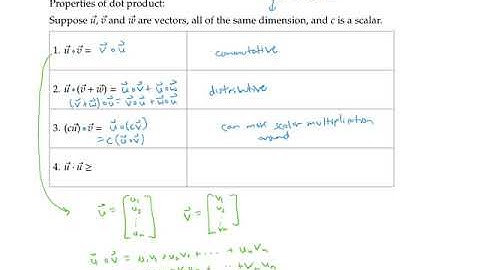 Properties of dot product:
Suppose u⃗, v⃗ and w⃗ are vectors, all of the same dimension, and c is a scalar.
1. u⃗ ∘ v⃗ = v⃗ ∘ u⃗ commutative
2. u⃗ ∘ (v⃗ + w⃗) = u⃗∘v⃗ + u⃗∘w⃗ distributive
(v⃗+w⃗)∘u⃗ = v⃗∘u⃗ + w⃗∘u⃗
3. (cu⃗) ∘ v⃗ = u⃗∘(cv⃗) can move scalar multiplication
= c(u⃗∘v⃗) around
4. u⃗ · u⃗ ≥
u⃗ = [u₁ u₂ ⋮ uₙ] v⃗ = [v₁ v₂ ⋮ vₙ]
u⃗ ∘ v⃗ = u₁v₁ + u₂v₂ + ··· + uₙvₙ
+ ··· + vₙuₙ